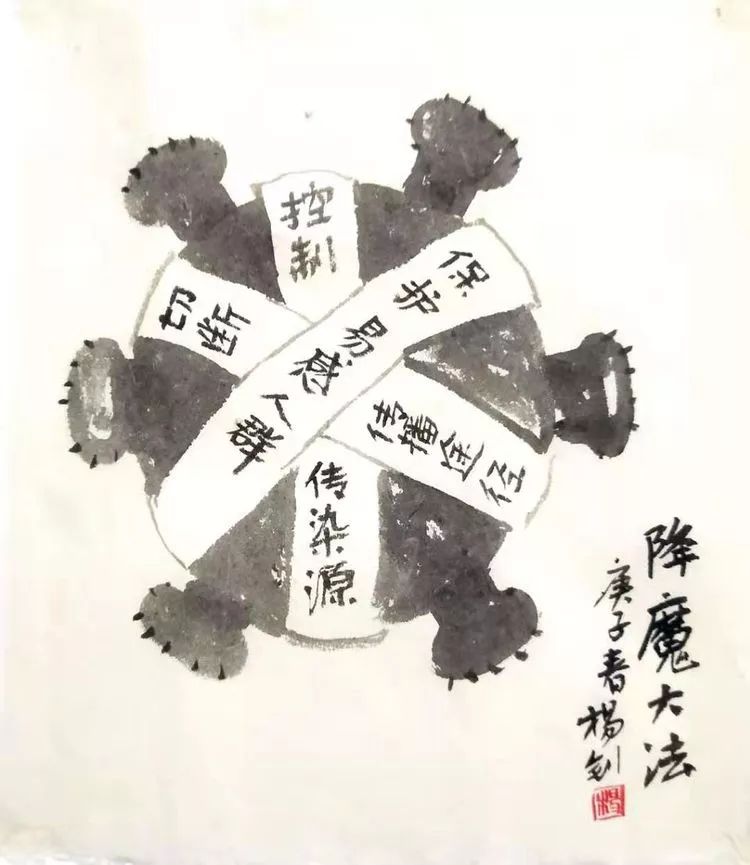 控制
传染源
切断
传播途径
保护易感人群
降魔大法
庚子春杨剑